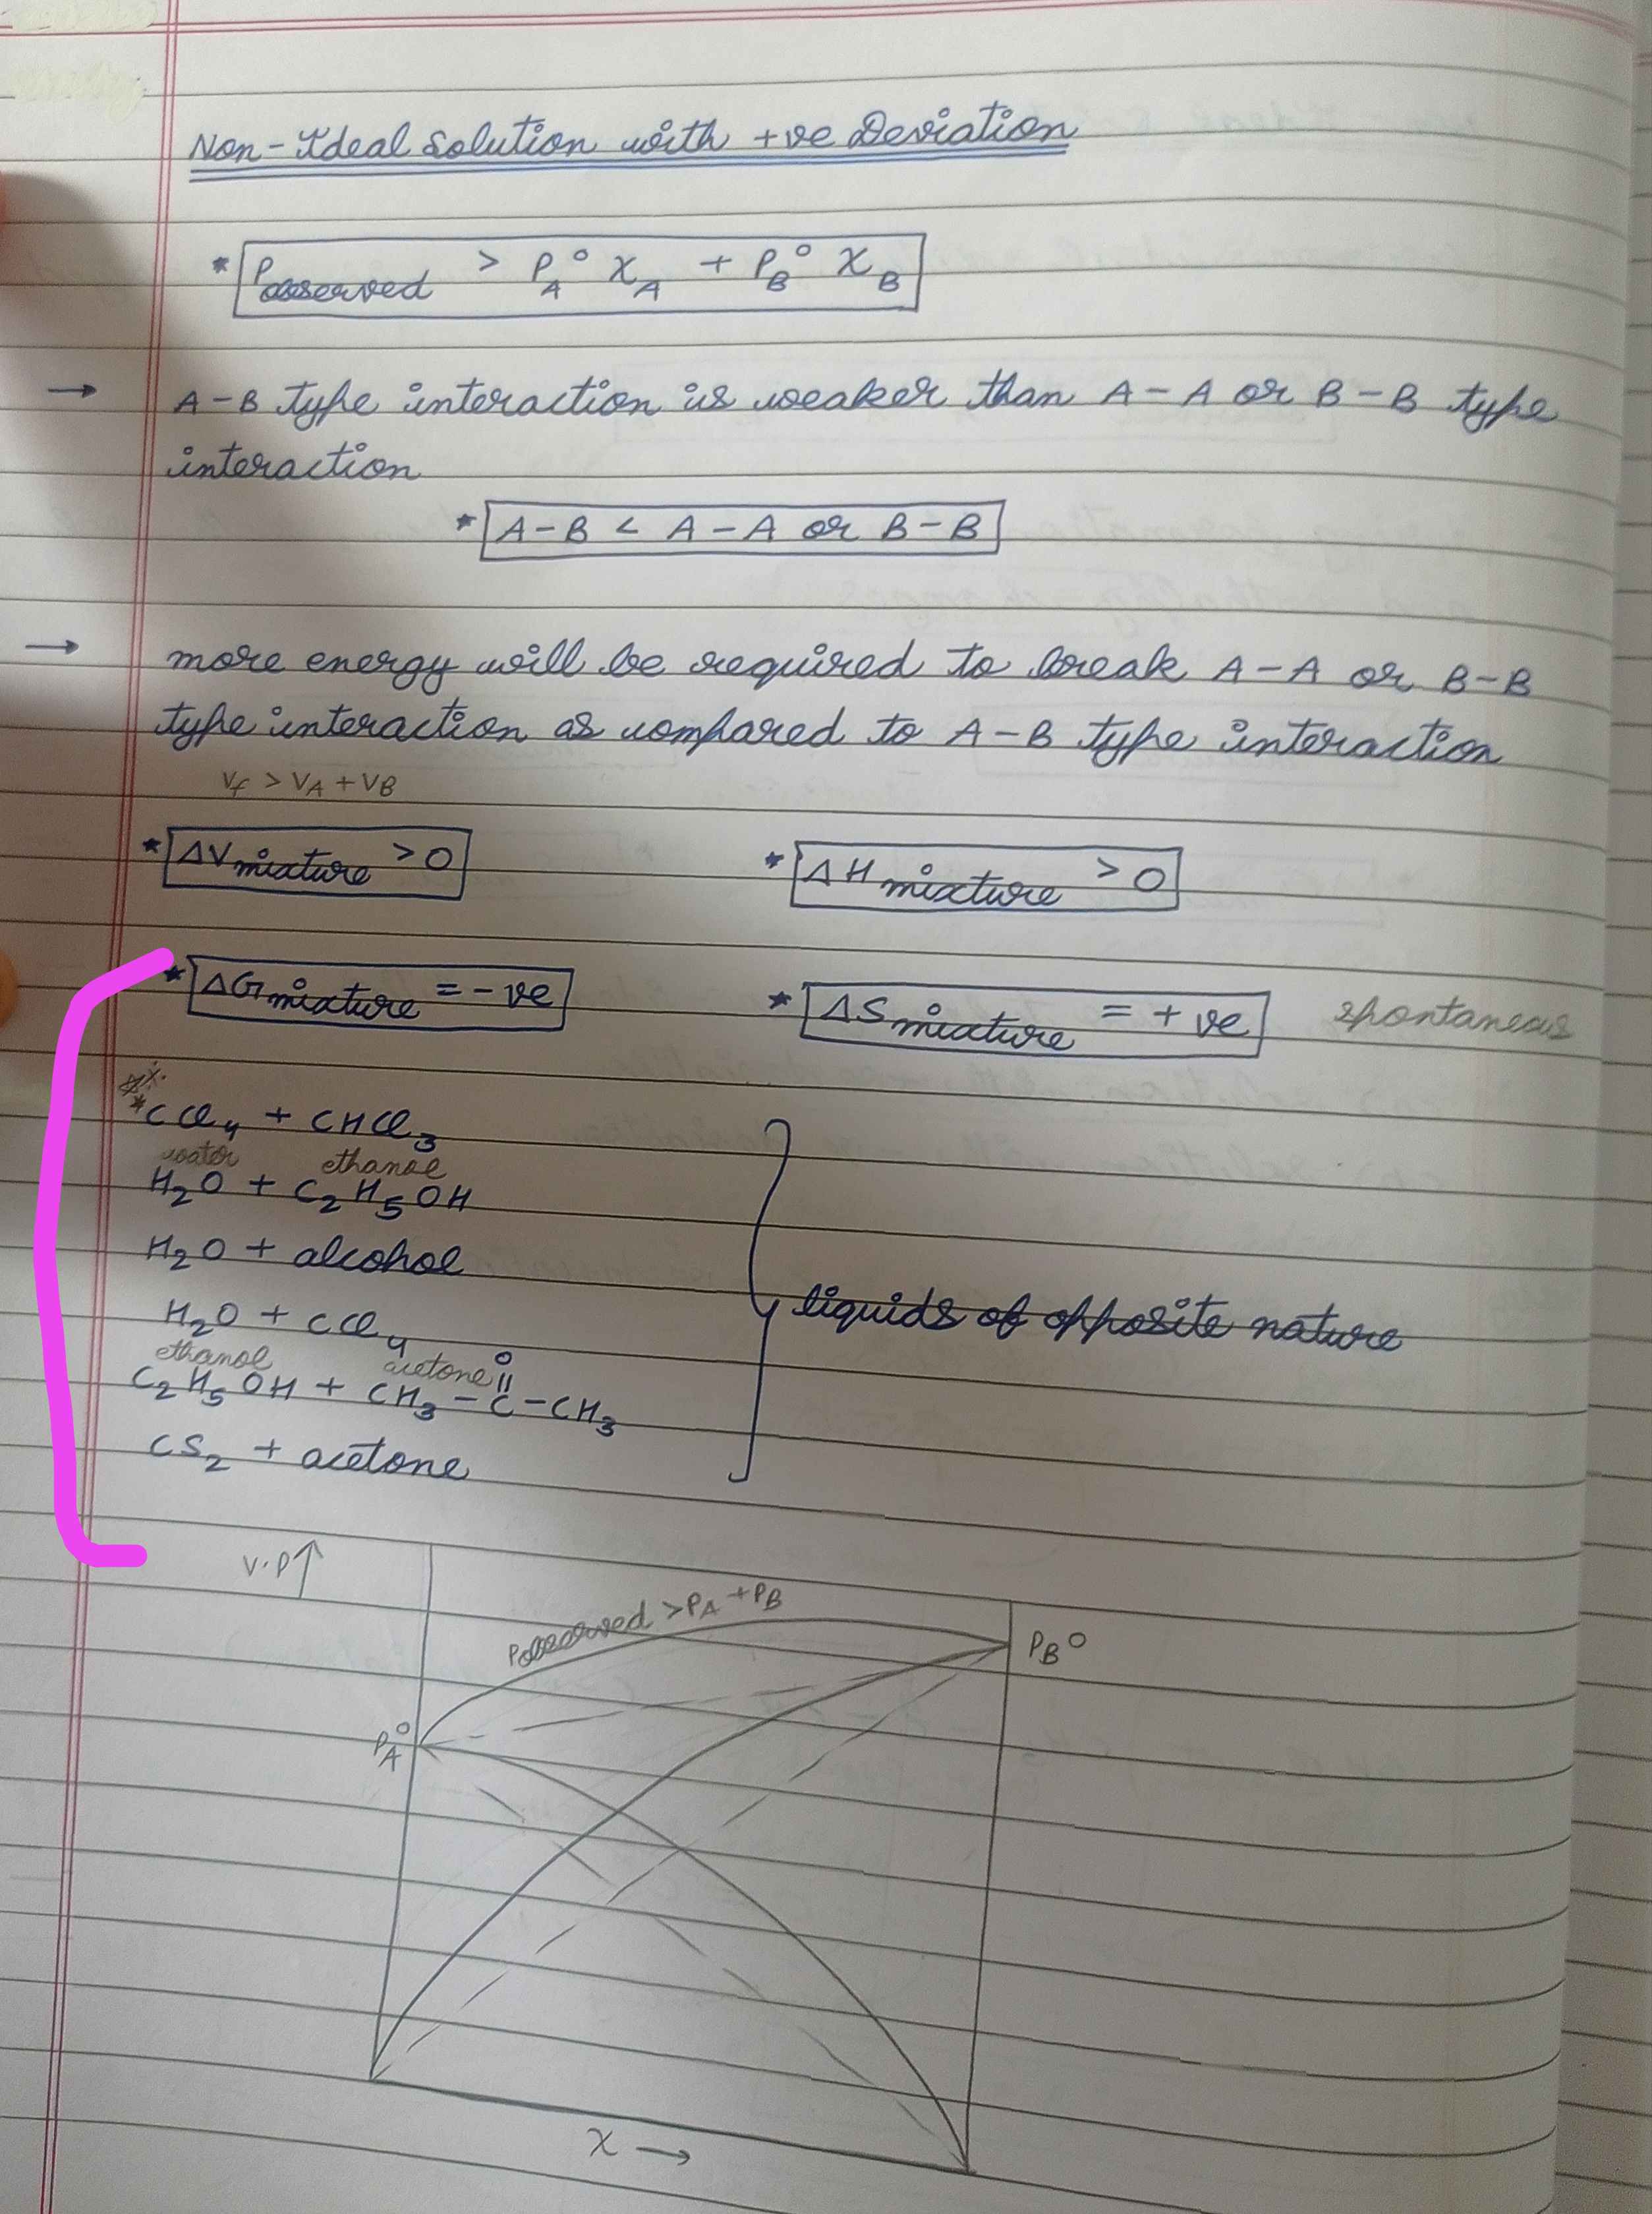 Non-Ideal Solution with +ve Deviation
* P observed > P_A° χ_A + P_B° χ_B
→ A-B type interaction is weaker than A-A or B-B type
interaction
* A-B < A-A or B-B
→ more energy will be required to break A-A or B-B
type interaction as compared to A-B type interaction
Vf > VA + VB
* ΔV mixture > 0 * ΔH mixture > 0
* ΔG mixture = -ve * ΔS mixture = +ve spontaneous
* CCl₄ + CHCl₃
water ethanol
H₂O + C₂H₅OH
H₂O + alcohol
liquids of opposite nature
H₂O + CCl₄
ethanol acetone O
||
C₂H₅OH + CH₃-C-CH₃
CS₂ + acetone
V.P↑
P observed > PA + PB
PB°
PA°
χ →